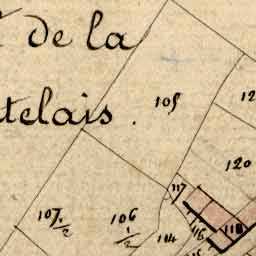 de la
telais.
109
12
120
117
107 1/2
106 1/2
104
116
118